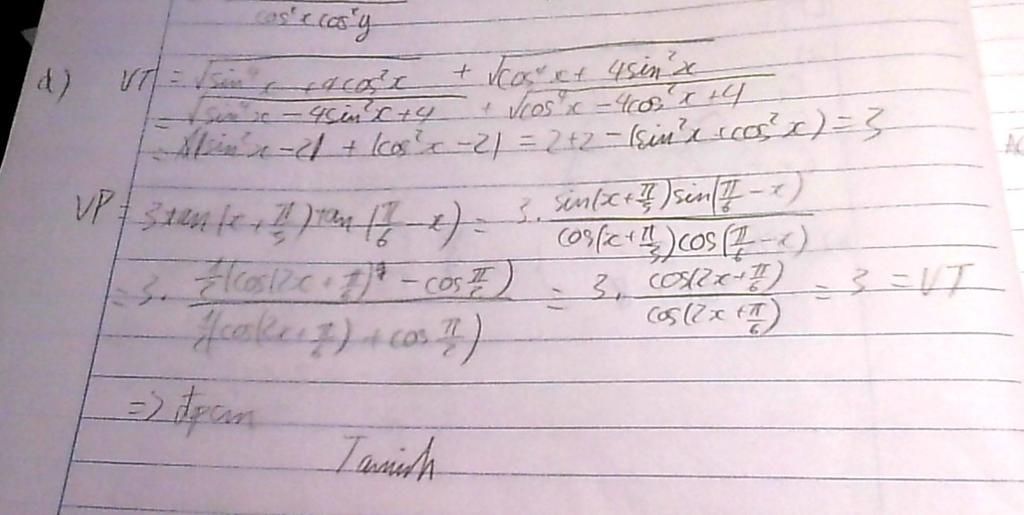 cos²x cos²y
d) VT = √(sin⁴x + 4cos²x) + √(cos⁴x + 4sin²x)
= √(sin⁴x - 4sin²x + 4) + √(cos⁴x - 4cos²x + 4)
= |sin²x - 2| + |cos²x - 2| = 2+2 - (sin²x + cos²x) = 3
VP = 3tan(x + π/3)tan(π/6 - x) = 3. sin(x+π/3)sin(π/6 - x) / cos(x+π/3)cos(π/6 - x)
= 3. ½(cos(2x + π/6) - cos π/2) / ½(cos(2x + π/6) + cos π/2) = 3. cos(2x+π/6) / cos(2x+π/6) = 3 = VT
=> đpcm
Tamish